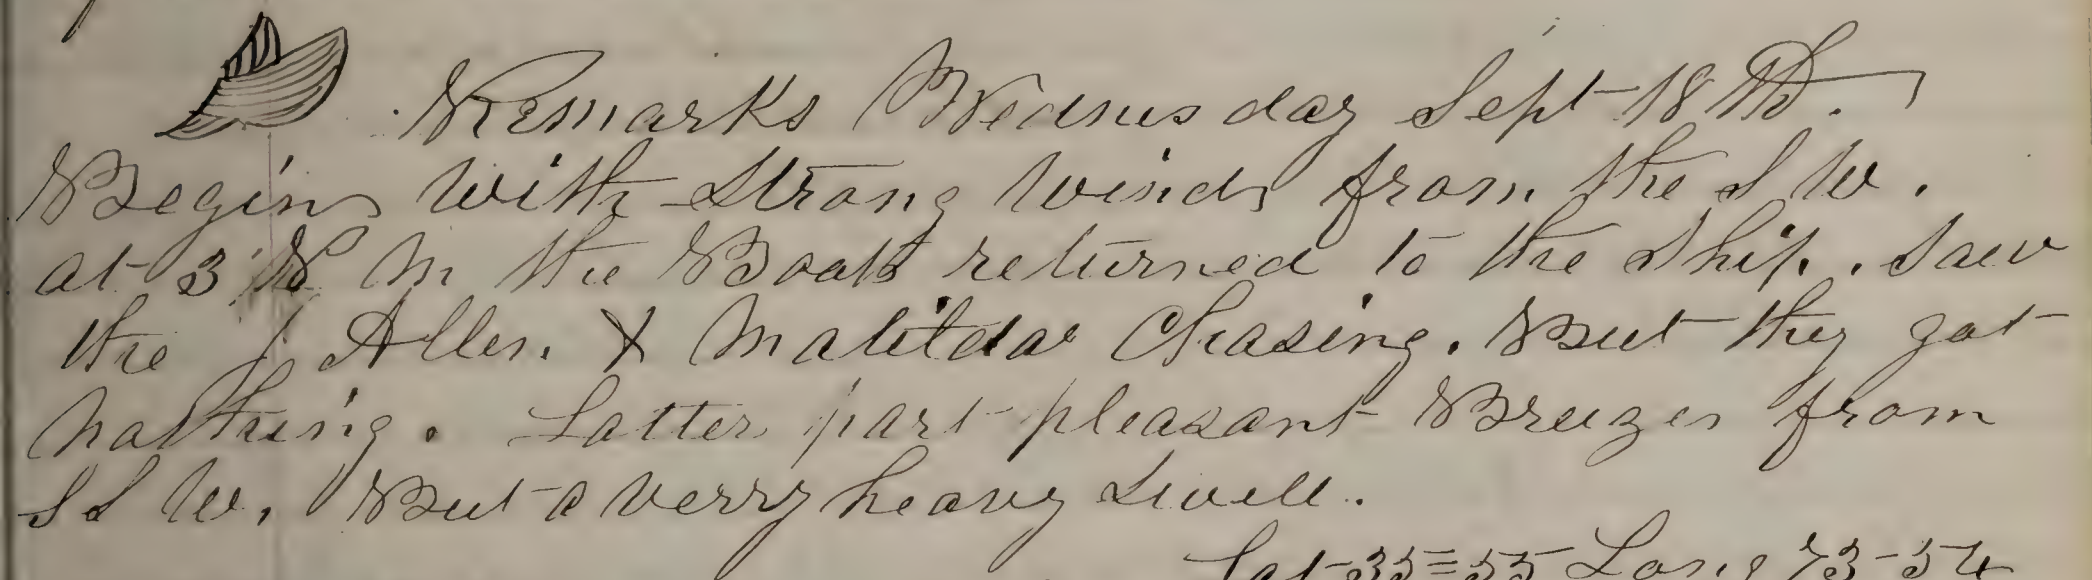 Remarks Wednesday Sept 18th.
Begins With Strong Winds from the S W.
at 3 P M the Boats returned to the Ship. Saw
the J Allen. & Matilda Chasing. But they got
nothing. Latter part pleasant Breezes from
S S W. But a verry heavy Swell.
Lat 35=55 Long 73-54